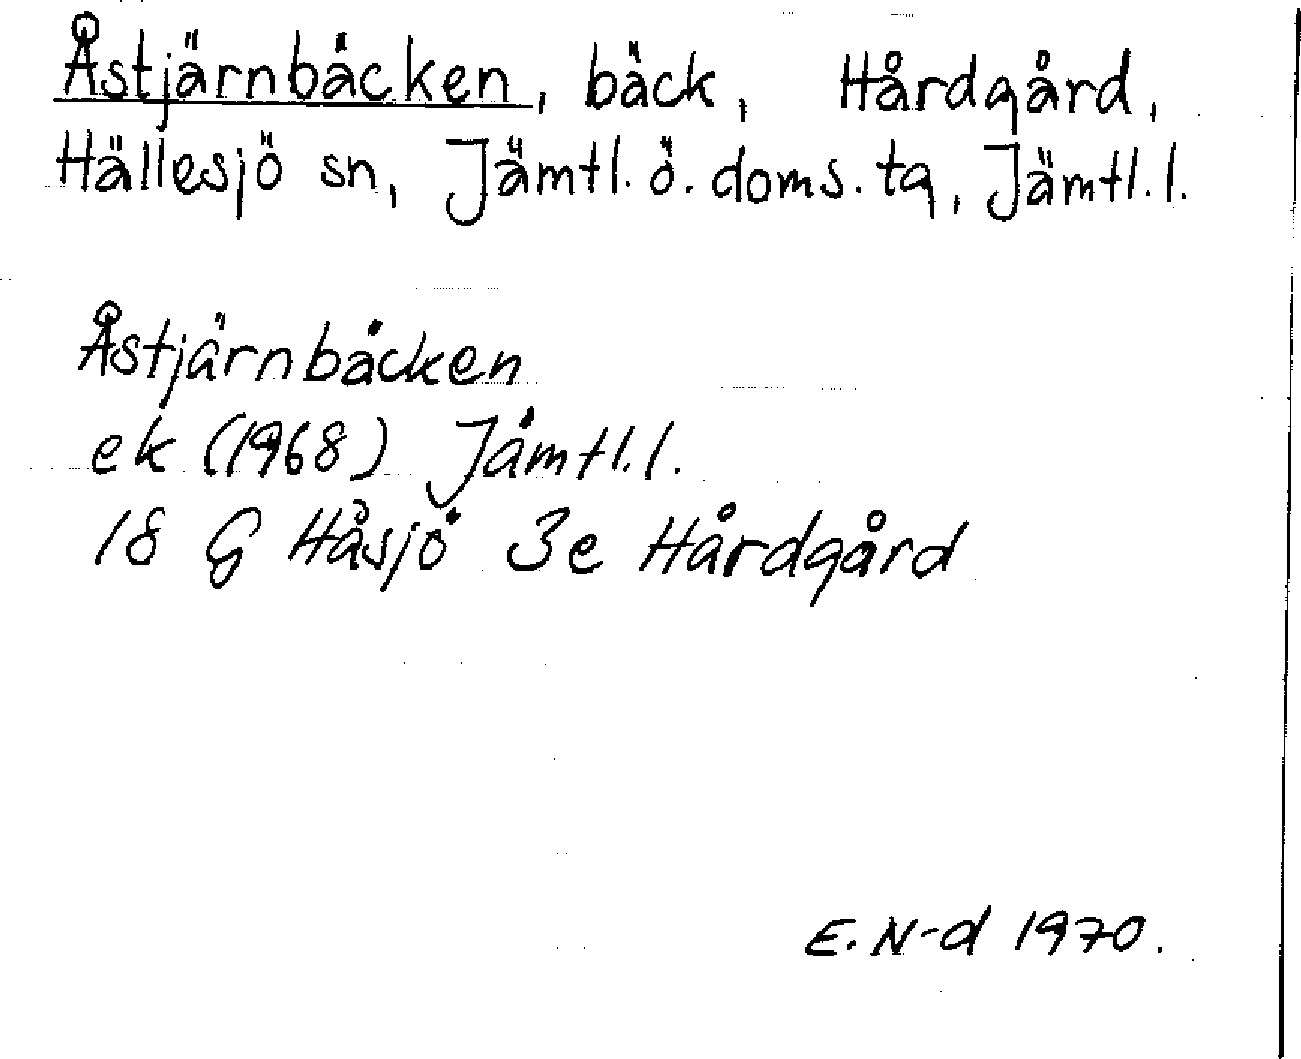 Åstjärnbäcken, bäck, Hårdgård,
Hällesjö sn, Jämtl. ö. doms. tg, Jämtl. l.
Åstjärnbäcken
ek (1968) Jämtl. l.
18 G Håsjö 3e Hårdgård
E. N-d 1970.